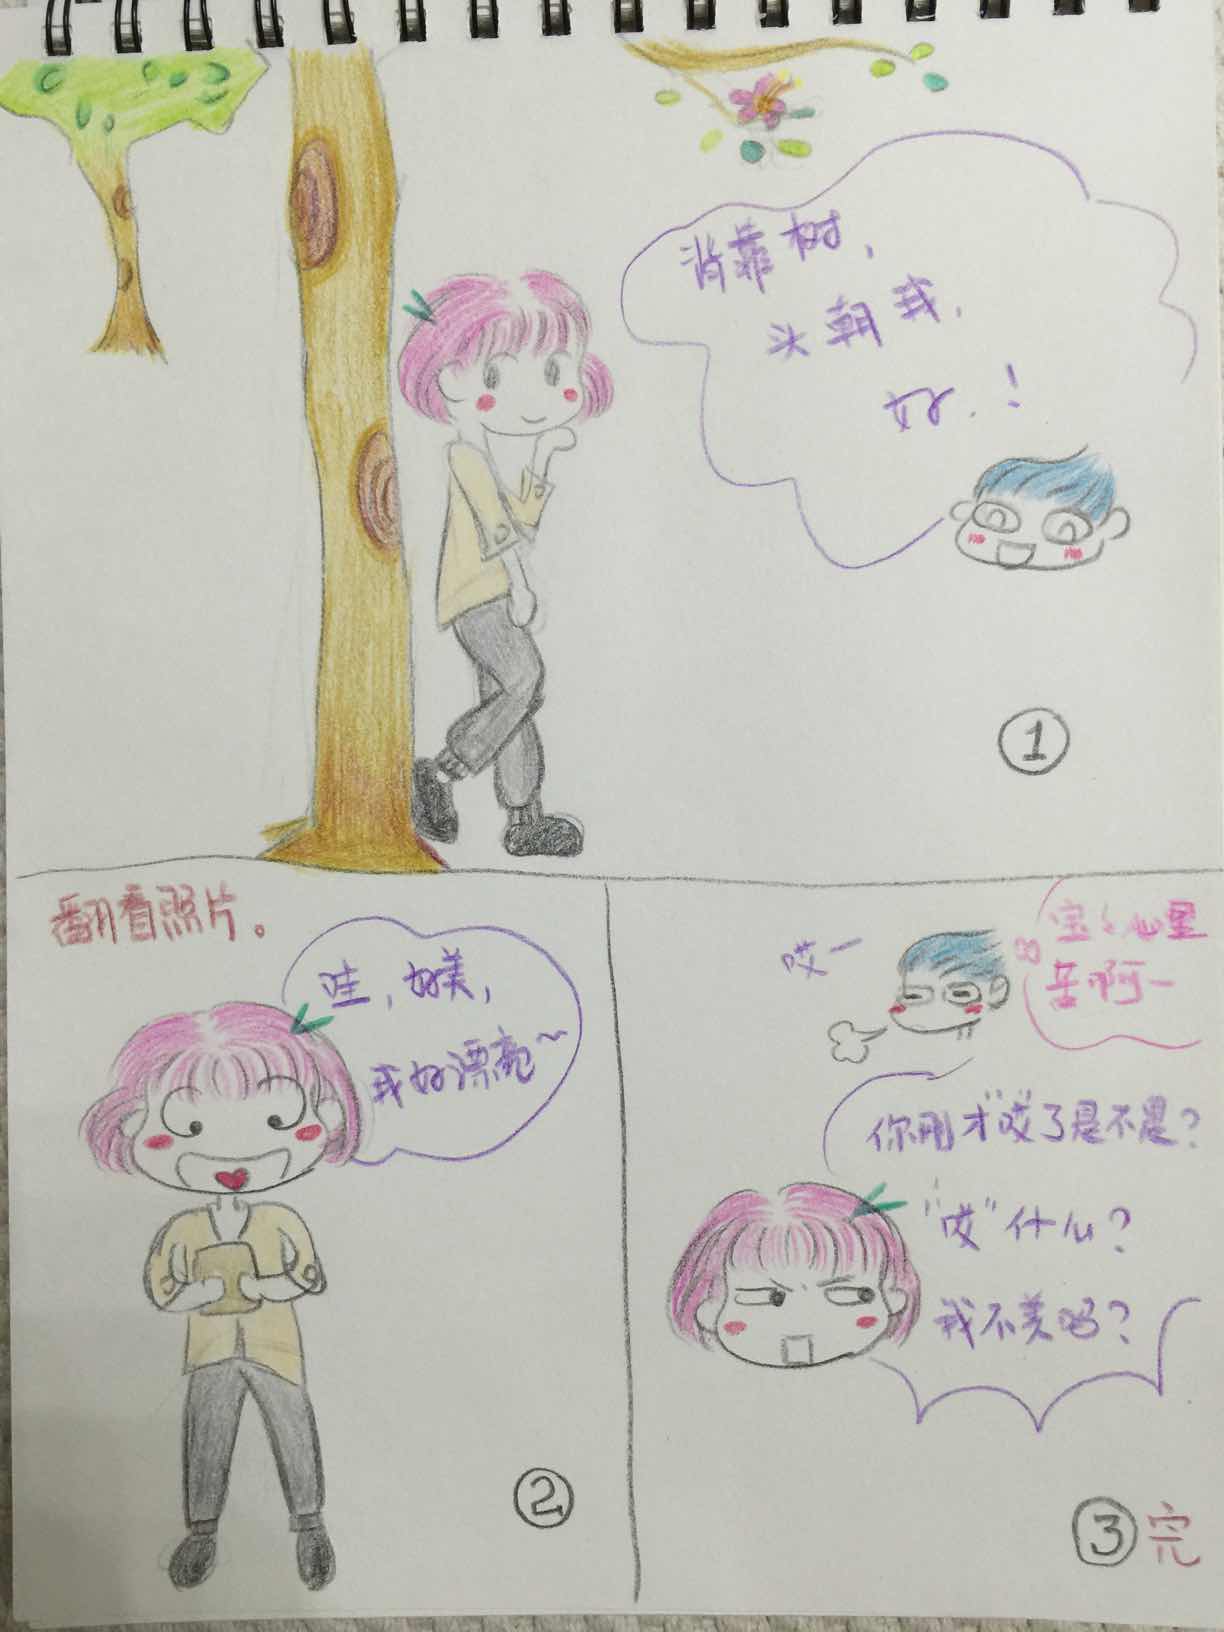 背靠树，
头朝我，
好.！
1
翻看照片。
哇，好美，
我好漂亮~
2
哎一
宝宝心里
苦啊一
你刚才"哎"了是不是？
"哎"什么？
我不美吗？
3
完